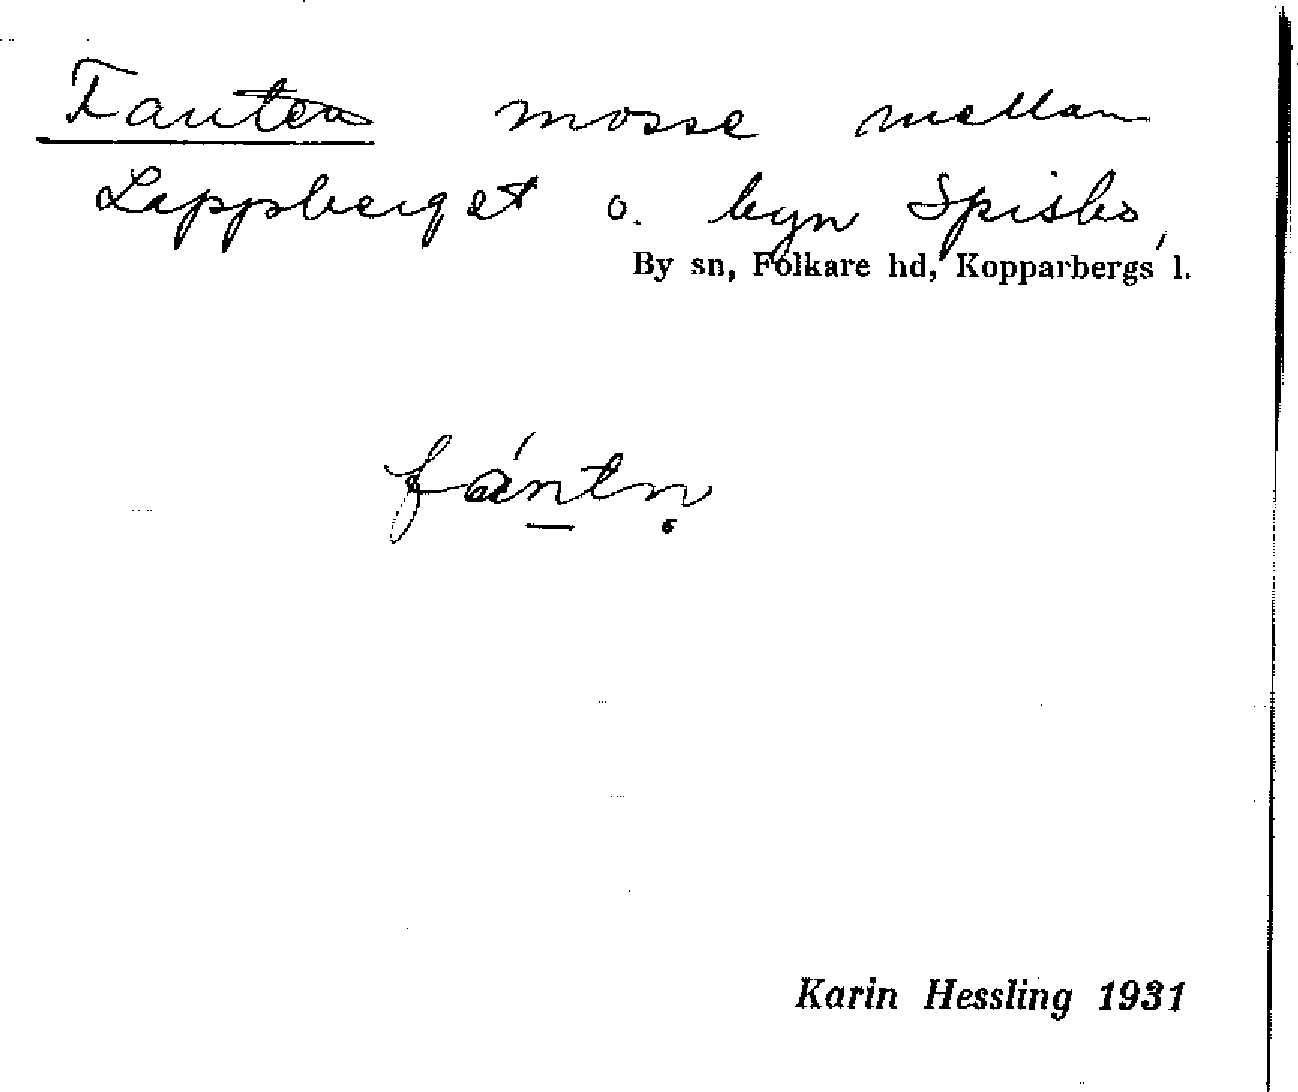 Fanten mosse mellan
Lappberget o. byn Spisbo,
By sn, Folkare hd, Kopparbergs l.
fántn̥
Karin Hessling 1931